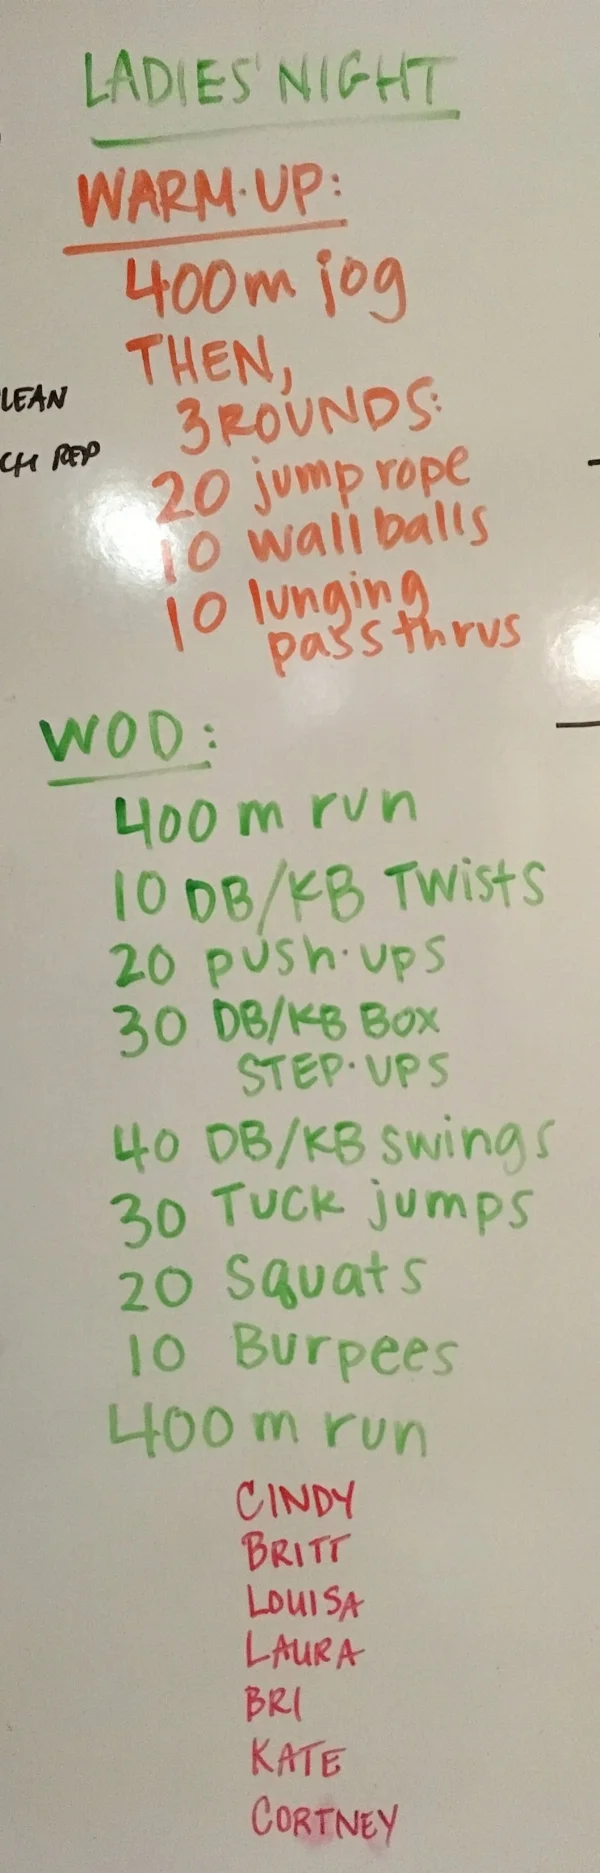 LADIES' NIGHT
WARM-UP:
400m jog
THEN,
3 ROUNDS:
20 jump rope
10 wall balls
10 lunging
pass thrus
LEAN
CH REP
WOD:
400m run
10 DB/KB Twists
20 push-ups
30 DB/KB BOX
STEP-UPS
40 DB/KB swings
30 TUCK jumps
20 Squats
10 Burpees
400m run
CINDY
BRITT
LOUISA
LAURA
BRI
KATE
CORTNEY